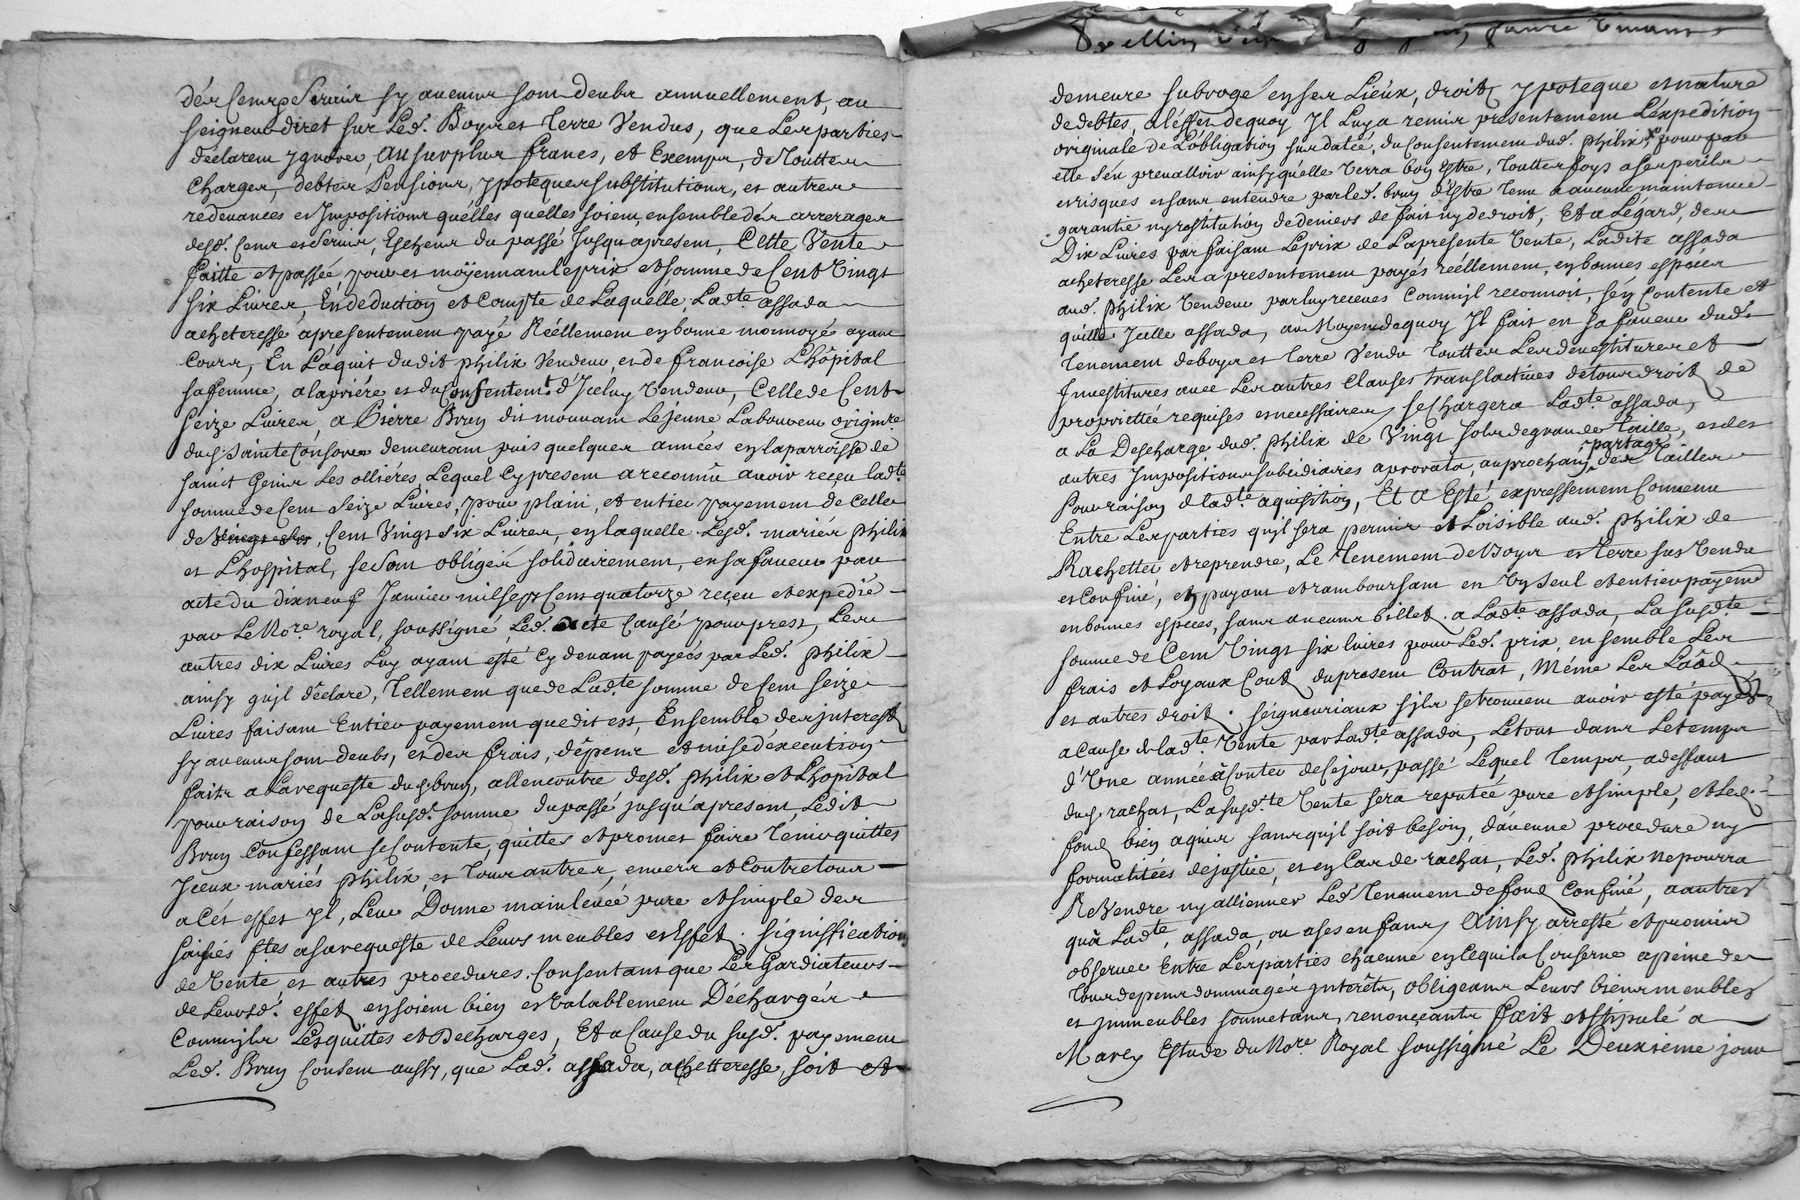 des Cens et Servis sy aucuns sont deubs annuellement, au
seigneur diret sur Led. Boys et Terre Vendus, que Les parties
déclarent ygnorer, Au surplus francs, et Exempts, de Touttes
Charges, debtes, Pensions, ypoteques substitutions, et autres
redevances et Impositions quélles quelles soient, ensemble des arrerages
desd. Cens et Servis, Escheus du passé Jusqu apresent, Cette Vente
faitte et passée pour et moÿennant le prix et somme de Cent Vingt
six Livres, En deduction et Compte de Laquélle, Ladte. assada
acheteresse apresentement payé Réellement en bonne monnoye ayant
Cours, En L'aquit dudit philix Vendeur, et de francoise L'hôpital
sa femme, a la priére et du Consentemt. d'Iceluy Vendeur, Celle de Cent
seize Livres, a Pierre Brun dit mouvant Le Jeune Laboureur origin.re
dud. Sainte Consorce demeurant puis quelques années en la parroisse de
saint Genis Les ollières, Lequel Cy present a reconnu avoir reçeu ladte.
somme de Cent Seize Livres, pour plain, et entier payement de Celle
de Cent Vingt six Livres, en laquelle Lesd. mariés Philix
et L'hospital, se sont obligés solidairement, en sa faveur par
acte du dix neuf Janvier mil sept Cens quatorze reçeu et expedié
par Le No.re royal, soussigné, Led. acte Causé pour prest, Les
autres dix Livres Luy ayant esté Cy devant payées par Led. Philix
ainsy qu'il déclare, Tellement que de Ladte. somme de Cent seize
Livres faisant Entier payement que dit est, Ensemble des interest
sy aucuns sont deubs, et des frais, dépens et mise d'execution
faits a La requeste dud. brun, allencontre desd. Philix et L'hopital
pour raison de La susd. somme du passé jusqu'apresent, Ledit
Brun Confessant se Contente, quittes et promet faire Tenir quittes
Iceux mariés Philix, et Tous autres, envers et Contre tous
a Cét effet Il, Leur Donne mainlevée pure et simple des
saisies ftes a sa requeste de Leurs meubles et Effet, signiffication
de Vente, et autres procedures. Consentant que Les Gardiateurs
de Leursd. effet, en soient bien et Valablement Déchargés
Comm'il Les quittes et Decharges, Et a Cause du susd. payement
Led. Brun Consent aussy, que Lad. assada, achetteresse, soit et
demeure subrogé en ses Lieux, droit, ypoteque et nature
de debtes, a léffet de quoy Il Luy a remis presentement L'expédition
originale de L'obligation susdatée, du Consentement dud. philix, pour par
elle s'en prevalloir ainsy qu'élle Verra bon Estre, Touttes foys a ses perils
et risques et sans entendre par Led. brun d'Estre Tenu a aucune maintenue
garantie ny restitution de deniers de fait ny de droit, Et a Légard, des
Dix Livres parfaisant Le prix de La presente Vente, Ladite assada
acheteresse Les a presentement payés réellement, en bonnes especes
aud. Philix Vendeur par luy receues Comm'il reconnoit, s'en Contente et
quitte Icelle assada, au Moyen de quoy Il fait en sa faveur dud.
Tenement de boys et Terre Vendu Touttes Les devestitures et
Investitures avec Les autres Clauses translactives de tous droit, de
proprietée requises et necessaires, se Chargera Ladte. assada,
a La Descharge dud. Philix de Vingt sols de grande Taille, et des
autres Impositions subsidiaires aprorata, au prochain partage des Tailles
Pour raison de ladte. aquisition, Et a Esté expressement Convenu
Entre Les parties qu'il sera permis et Loisible aud. Philix de
Rachetter et reprendre, Le Tenement de Boys et Terre sus Vendu
et Confiné, en payant et ramboursant en Un seul et entier payement
en bonnes especes, sans aucuns billet, a Ladte. assada, La susdte.
somme de Cent Vingt six livres pour Led. prix, ensemble Les
frais et Loyaux Cout, du present Contrat, Méme Les Laôd
et autres droit, seigneuriaux s'ils se trouvent avoir esté payés
a Cause de ladte. Vente par Ladte. assada, Le tout dans Le temps
d'Une année a Conter de Ce jour, passé Lequel Temps, a deffaut
dud. rachat, La susdte. Vente sera reputée pure et simple, et Led.
fond bien aquis sans qu'il soit besoin, d'aucune procedure ny
formalitées de justice, et en Cas de rachat, Led. Philix ne pourra
Re Vendre ny allienner Led. Tenement de fond Confiné, a autres
qu'a Ladte. assada, ou a ses enfans, Ainsy arresté et promis
observer Entre Les parties chacune en Ce qui la Conserne a peine de
tous depens dommages interéts, obligeant Leurs biens meubles
et immeubles soumetans, renonçeants fait et stipulé a
Marcy Estude du No.re Royal soussigné Le Deuxseme jour